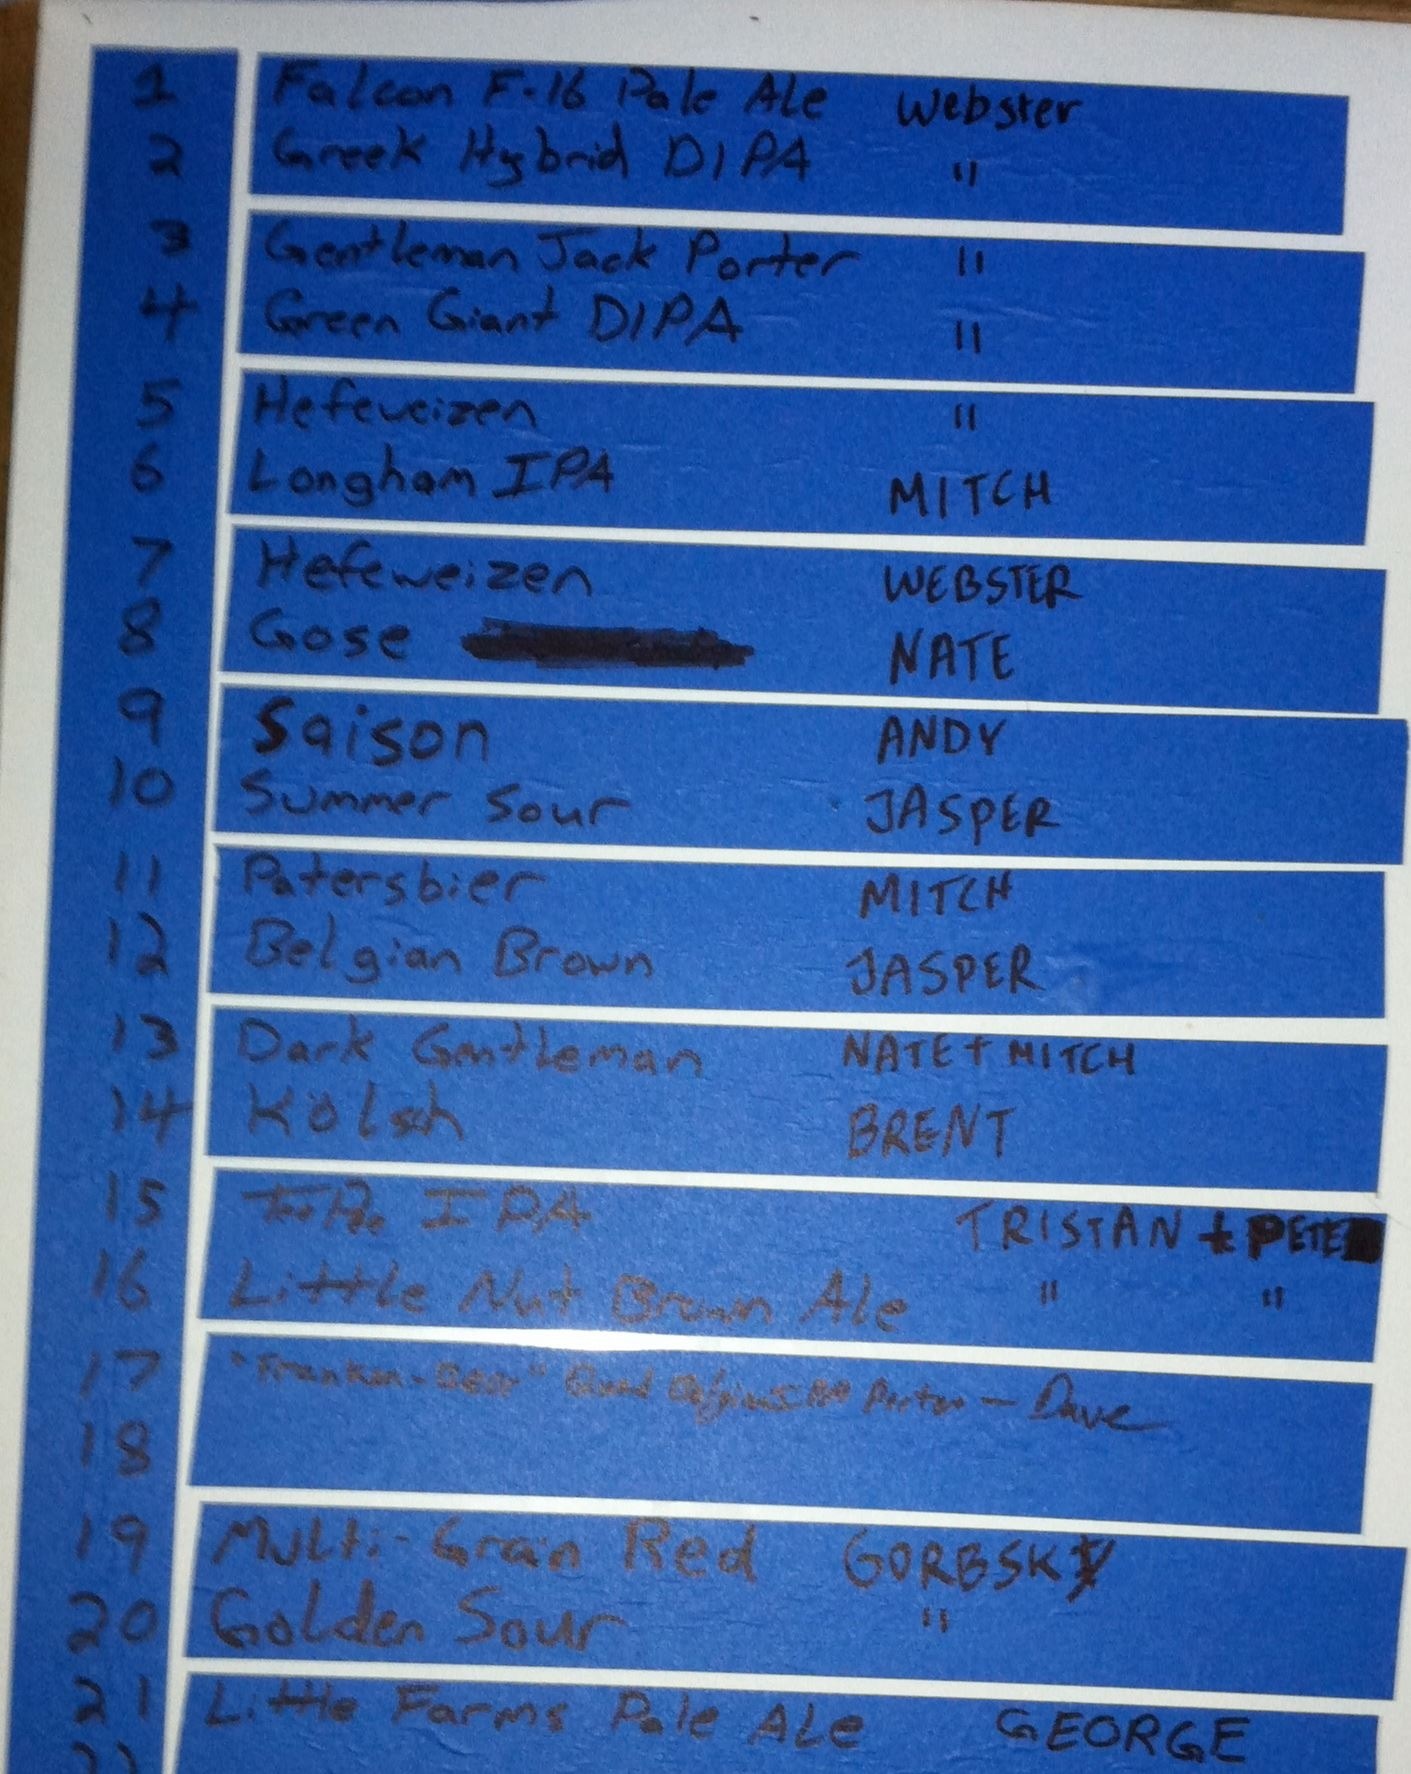 1 Falcon F-16 Pale Ale Webster
2 Greek Hybrid DIPA "
3 Gentleman Jack Porter "
4 Green Giant DIPA "
5 Hefeweizen "
6 Longham IPA MITCH
7 Hefeweizen WEBSTER
8 Gose NATE
9 Saison ANDY
10 Summer Sour JASPER
11 Patersbier MITCH
12 Belgian Brown JASPER
13 Dark Gentleman NATE + MITCH
14 Kölsch BRENT
15 IPA TRISTAN + PETE
16 Little Nut Brown Ale " "
17 "Franken-Beer" Quad Porter - Dave
18
19 Multi-Grain Red GORBSKY
20 Golden Sour "
21 Little Farms Pale Ale GEORGE
22